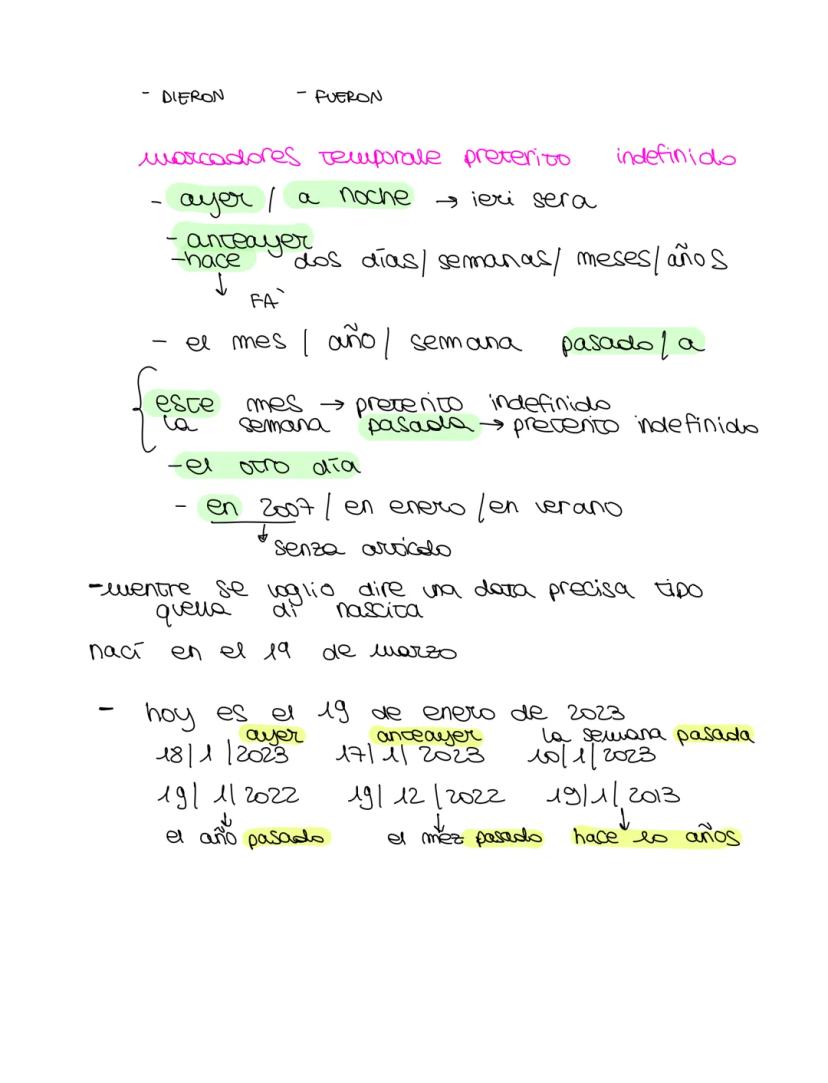 - DIERON - FUERON
marcadores temporale preterito indefinido
- ayer / a noche → ieri sera
- anteayer
- hace dos días / semanas / meses / años
↓ FA`
- el mes / año / semana pasado / a
este mes → preterito indefinido
la semana pasada → preterito indefinido
- el otro día
- en 2007 / en enero / en verano
↓ senza articolo
- mentre se voglio dire una data precisa tipo
quella di nascita
nací en el 19 de marzo
- hoy es el 19 de enero de 2023
ayer anteayer la semana pasada
18/1/2023 17/1/2023 10/1/2023
19/1/2022 19/12/2022 19/1/2013
↓ ↓ ↓
el año pasado el mez pasado hace 10 años